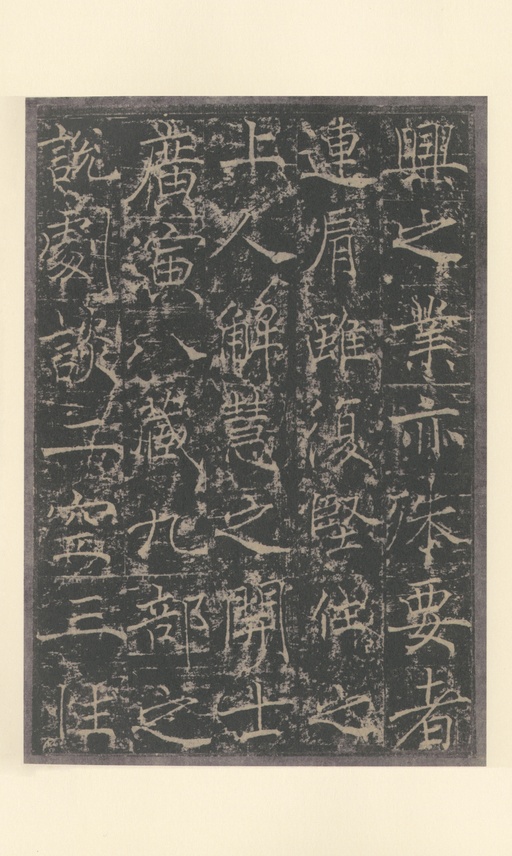 興之業亦殊要者
連肩雖復堅信之
上人解慧之開士
廣演八藏九部之
說劇談二空三性